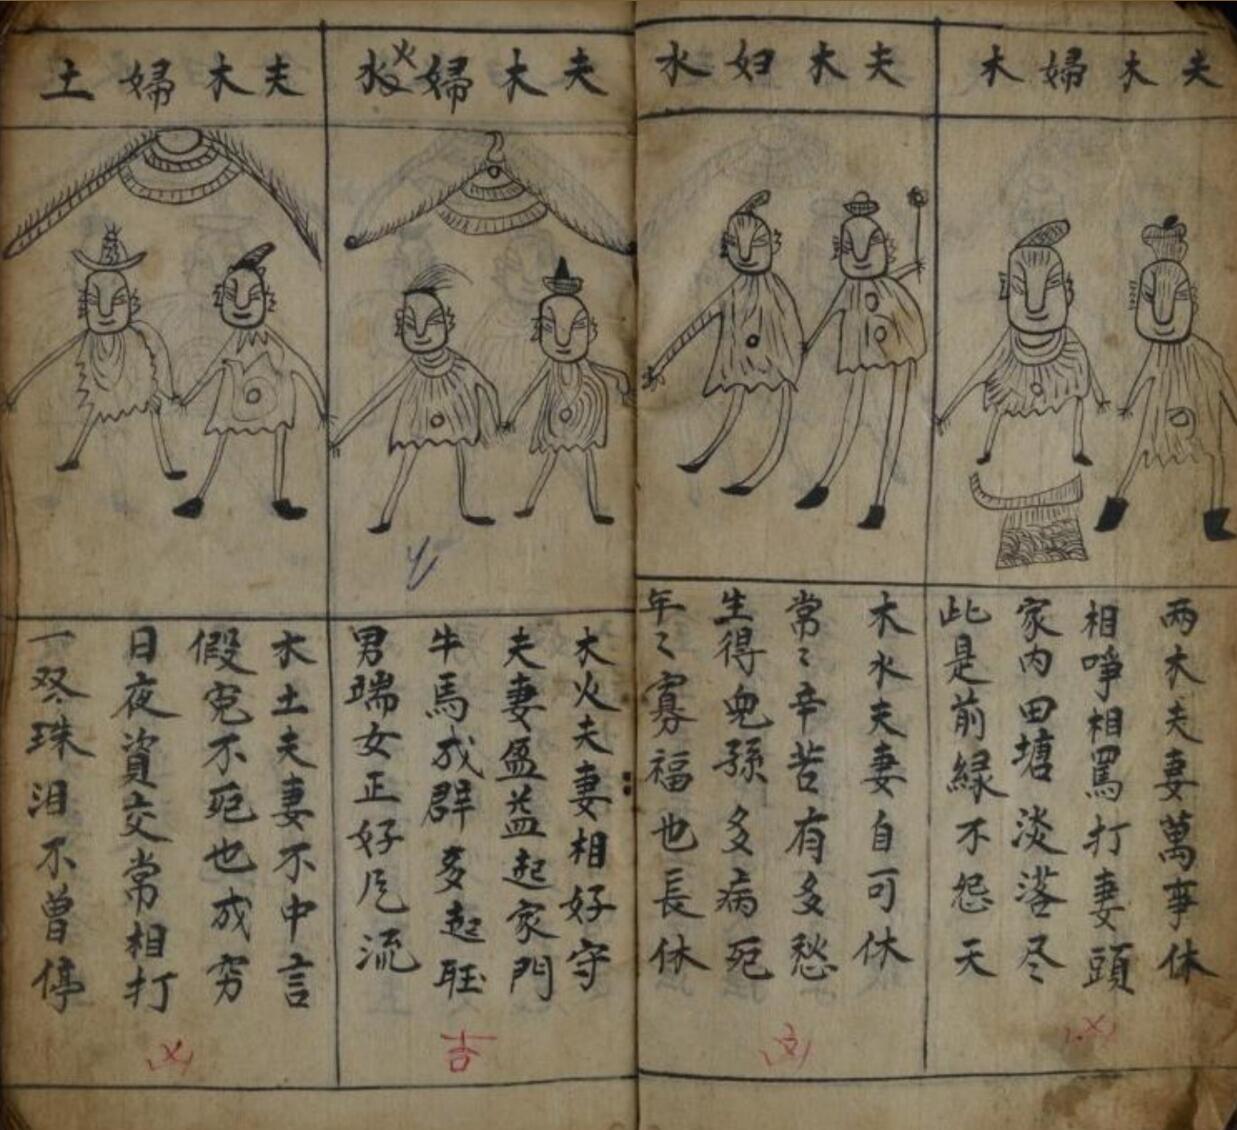 夫木婦木
兩木夫妻萬事休
相啀相罵打妻頭
家内田塘淡落尽
此是前緑不怨天
凶
夫木妇水
木水夫妻自可休
常〻辛苦有多愁
生得兒孫多病死
年〻寡福也長休
凶
夫木婦火
木火夫妻相好守
夫妻盈益起家門
牛馬成群多起
男端女正好凡流
吉
夫木婦土
木土夫妻不中言
假宽不死也成穷
日夜資交常相打
一双珠泪不曾停
凶